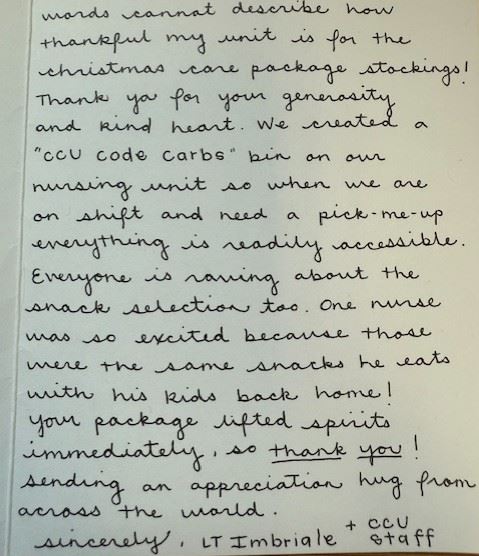 words cannot describe how
thankful my unit is for the
christmas care package stockings!
Thank ya for your generosity
and kind heart. We created a
"CCU CODE Carbs" bin on our
nursing unit so when we are
on shift and need a pick-me-up
everything is readily accessible.
Everyone is raving about the
snack selection too. One nurse
was so excited because those
were the same snacks he eats
with his kids back home!
your package lifted spirits
immediately, so thank you!
sending an appreciation hug from
across the world.
sincerely, LT Imbriale + CCU
staff